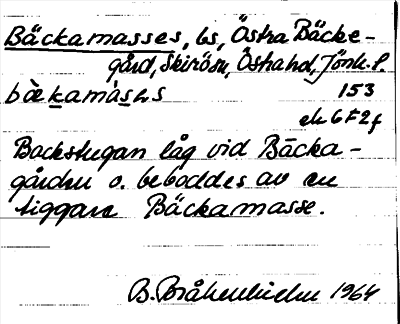 Bäckamasses, bs, Östra Bäcke-
gård, Skirösn, Östrahd, Jönk. l.
bæ̀kamásɘs 153
ek 6F2f
Backstugan låg vid Bäcka-
gården o. beboddes av en
tiggare Bäckamasse.
B. Bråkenhielm 1964